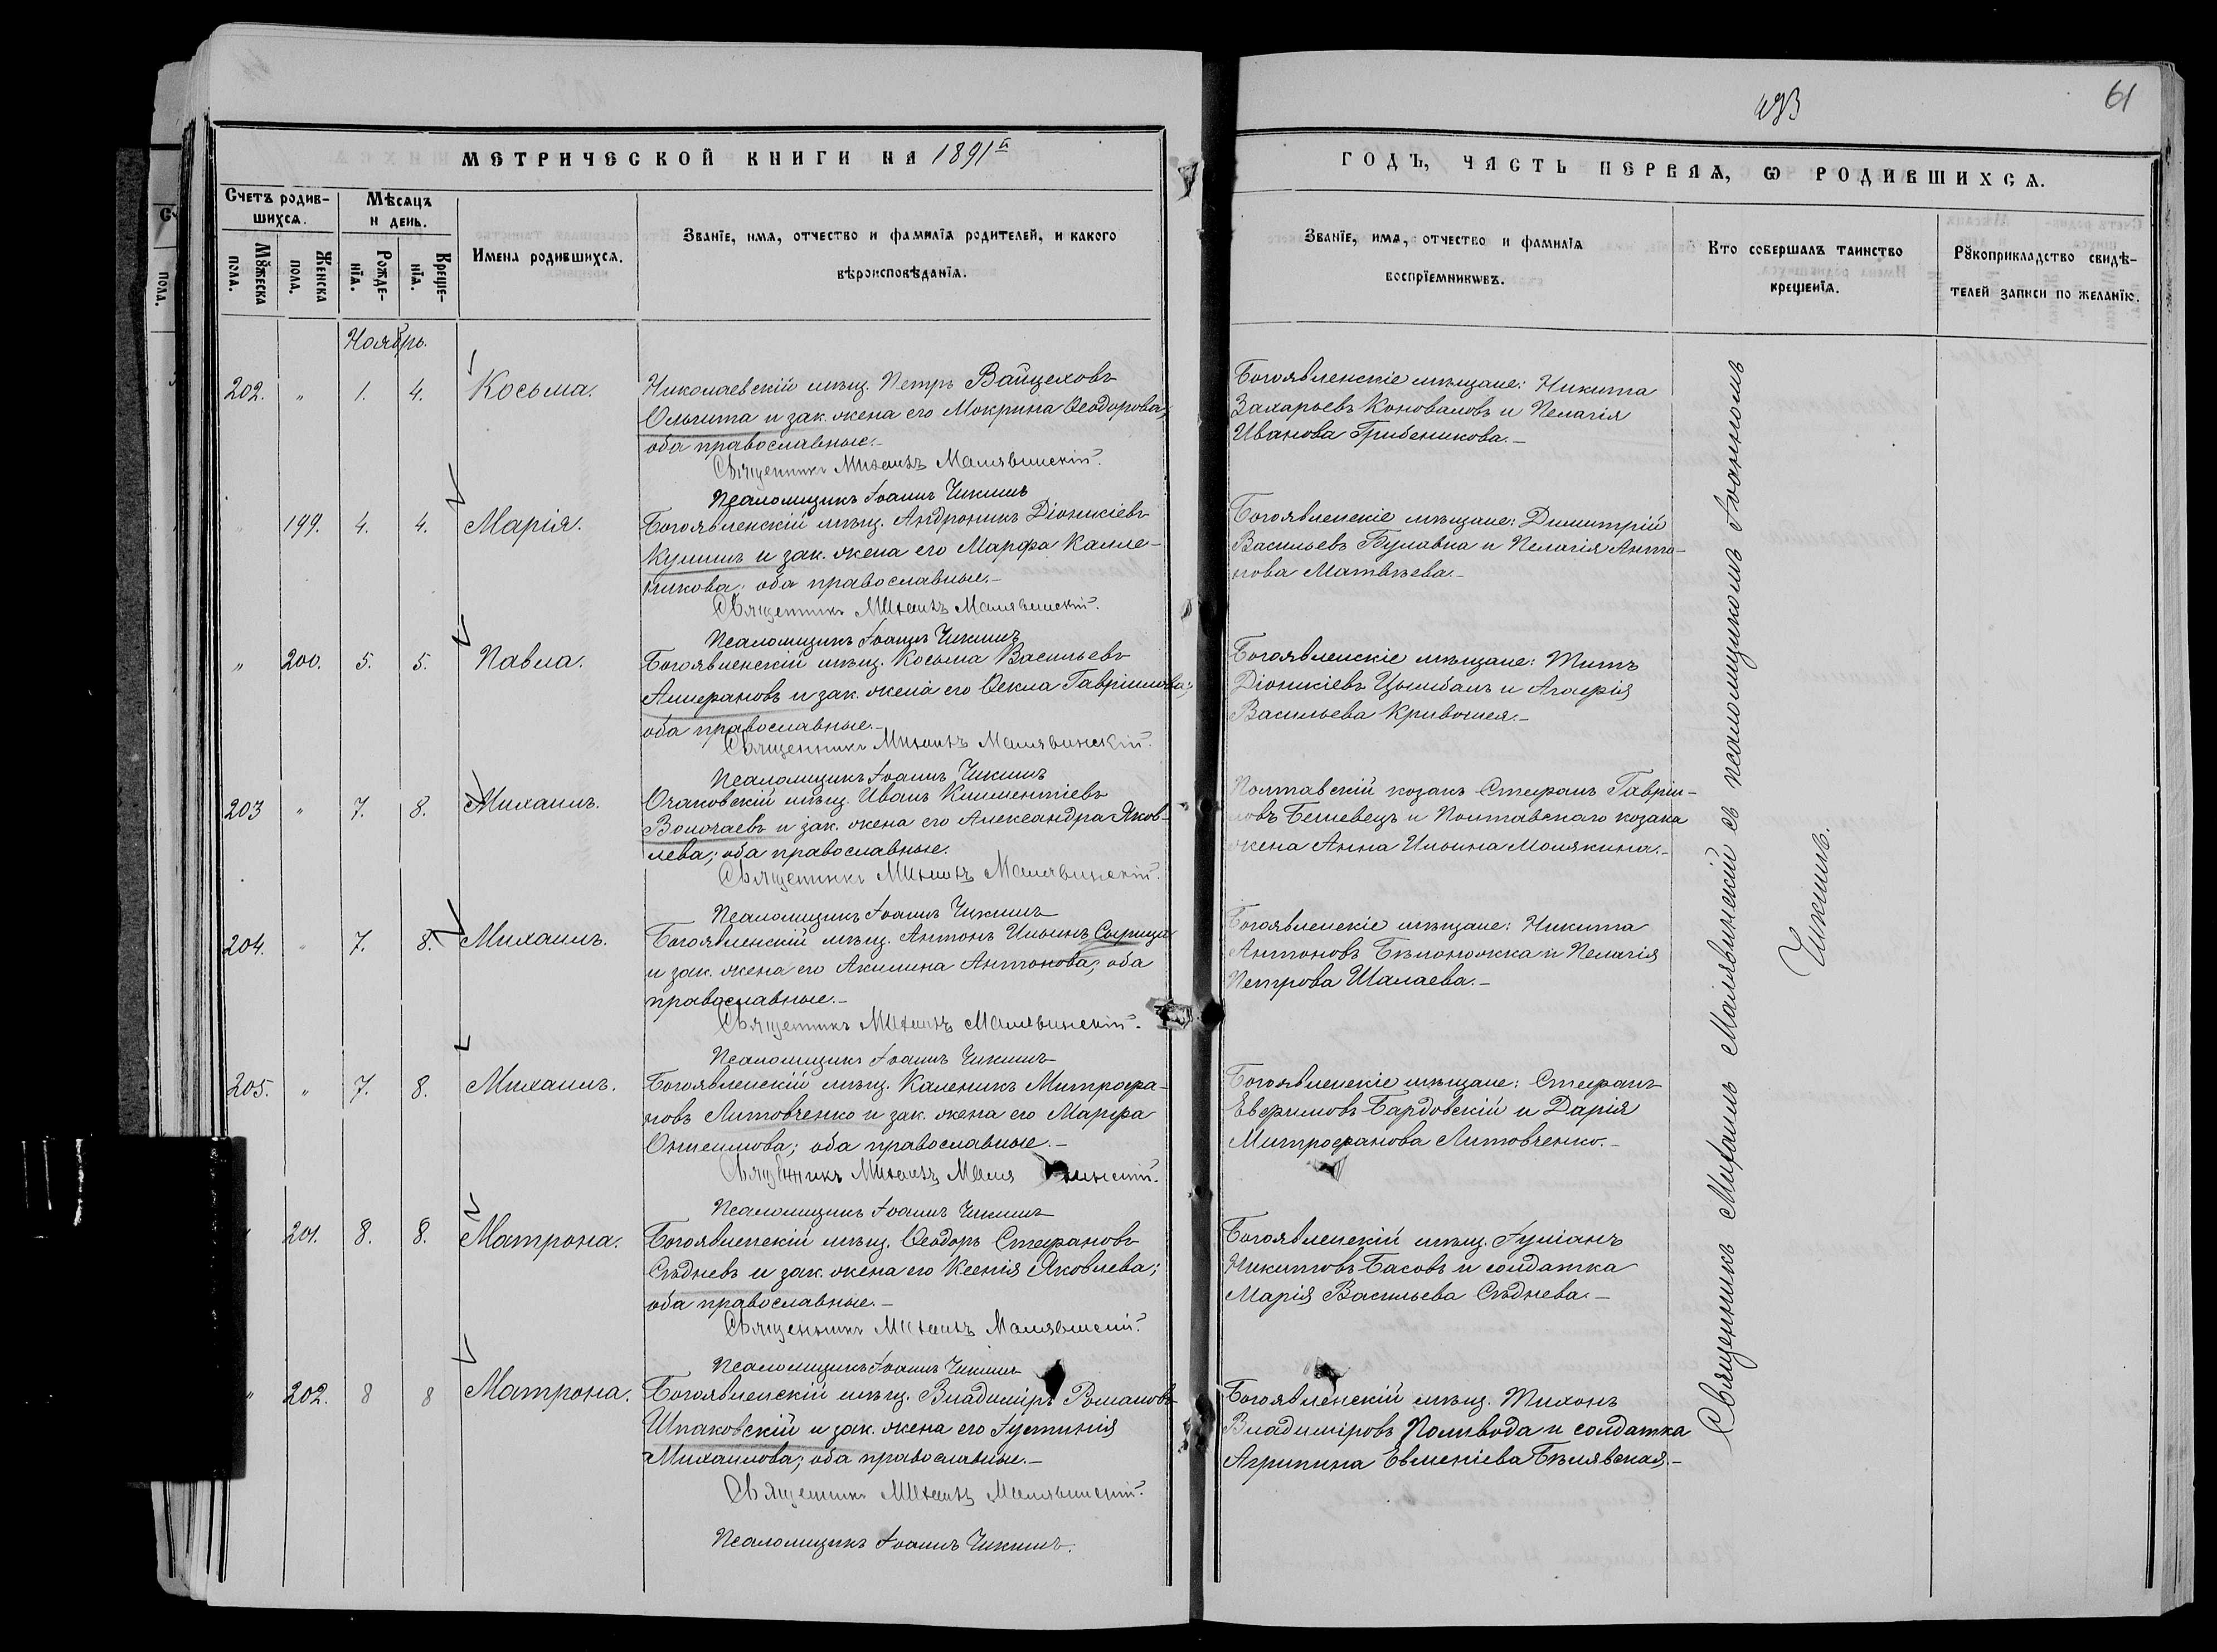 493
61
МЕТРИЧЕСКОЙ КНИГИ НА 1891й
ГОДЪ, ЧАСТЬ ПЕРВАЯ, Ѡ РОДИВШИХСѦ.
Счетъ родив-
шихсѧ.
Мѣсѧцъ
и день.
Мꙋжеска
пола.
Женска
пола.
Рожде-
нїѧ.
Креще-
нїѧ.
Имена родившихсѧ.
Званїе, имѧ, отчество и фамилїѧ родителей, и какого
вѣроисповѣданїѧ.
Званїе, имѧ, отчество и фамилїѧ
воспрїемникѡвъ.
Кто совершалъ таинство
крещенїѧ.
Рꙋкоприкладство свидѣ-
телей записи по желанїю.
Ноябрь.
202. " 1. 4. Косьма.
Николаевскій мѣщ. Петръ Вайцеховъ
Ольшта и зак. жена его Мокрина Ѳеодорова;
оба православные.-
Священникъ Михаилъ Малявинскій.
Псаломщикъ Іоаннъ Чикишъ
Богоявленскіе мѣщане: Никита
Захарьевъ Коноваловъ и Пелагія
Иванова Грибеникова.-
" 199. 4. 4. Марія.
Богоявленскій мѣщ. Андроникъ Діонисіевъ
Кулишъ и зак. жена его Марфа Калле-
никова; оба православные.-
Священникъ Михаилъ Малявинскій.
Псаломщикъ Іоаннъ Чикишъ
Богоявленскіе мѣщане: Димитрій
Васильевъ Булавка и Пелагія Анто-
нова Матвѣева.-
" 200. 5. 5. Павла.
Богоявленскій мѣщ. Косьма Васильевъ
и зак. жена его Ѳекла Гавріилова;
оба православные.-
Священникъ Михаилъ Малявинскій.
Псаломщикъ Іоаннъ Чикишъ
Богоявленскіе мѣщане: Титъ
Діонисіевъ Цымбалъ и Агафія
Васильева Кривошея.-
203 " 7. 8. Михаилъ.
Очаковскій мѣщ. Иванъ Климентіевъ
Волочаевъ и зак. жена его Александра Яков-
лева; оба православные.
Священникъ Михаилъ Малявинскій.
Псаломщикъ Іоаннъ Чикишъ
Полтавскій козакъ Стефанъ Гаврiи-
ловъ Бешевецъ и Полтавскаго козака
жена Анна Ильина Молякина.-
204. " 7. 8. Михаилъ.
Богоявленскій мѣщ. Антонъ Ильинъ Сырица
и зак. жена его Акилина Антонова; оба
православные.-
Священникъ Михаилъ Малявинскій.
Псаломщикъ Іоаннъ Чикишъ
Богоявленскіе мѣщане: Никита
Антоновъ Бѣлоножка и Пелагія
Петрова Шалаева.-
205. " 7. 8. Михаилъ.
Богоявленскій мѣщ. Каленикъ Митрофа-
новъ Литовченко и зак. жена его Марфа
Онисимова; оба православные.-
Священникъ Михаилъ Малявинскій.
Псаломщикъ Іоаннъ Чикишъ
Богоявленскіе мѣщане: Стефанъ
Евфимовъ Бардовскій и Дарія
Митрофанова Литовченко.-
" 201. 8. 8. Матрона.
Богоявленскій мѣщ. Ѳеодоръ Стефановъ
Сѣдневъ и зак. жена его Ксенія Яковлева;
оба православные.-
Священникъ Михаилъ Малявинскій.
Псаломщикъ Іоаннъ Чикишъ
Богоявленскій мѣщ. Іуліанъ
Никитовъ Басовъ и солдатка
Марія Васильева Сѣднева.-
" 202. 8 8 Матрона.
Богоявленскій мѣщ. Владиміръ Романовъ
Шпаковскій и зак. жена его Іустинія
Михаилова; оба православные.-
Священникъ Михаилъ Малявинскій.
Псаломщикъ Іоаннъ Чикишъ.
Богоявленскій мѣщ. Тихонъ
Владиміровъ Поливода и солдатка
Агрипина Евменіева Бѣлявская.-
Священникъ Михаилъ Малявинскій съ псаломщикомъ Іоанномъ
Чикишъ.